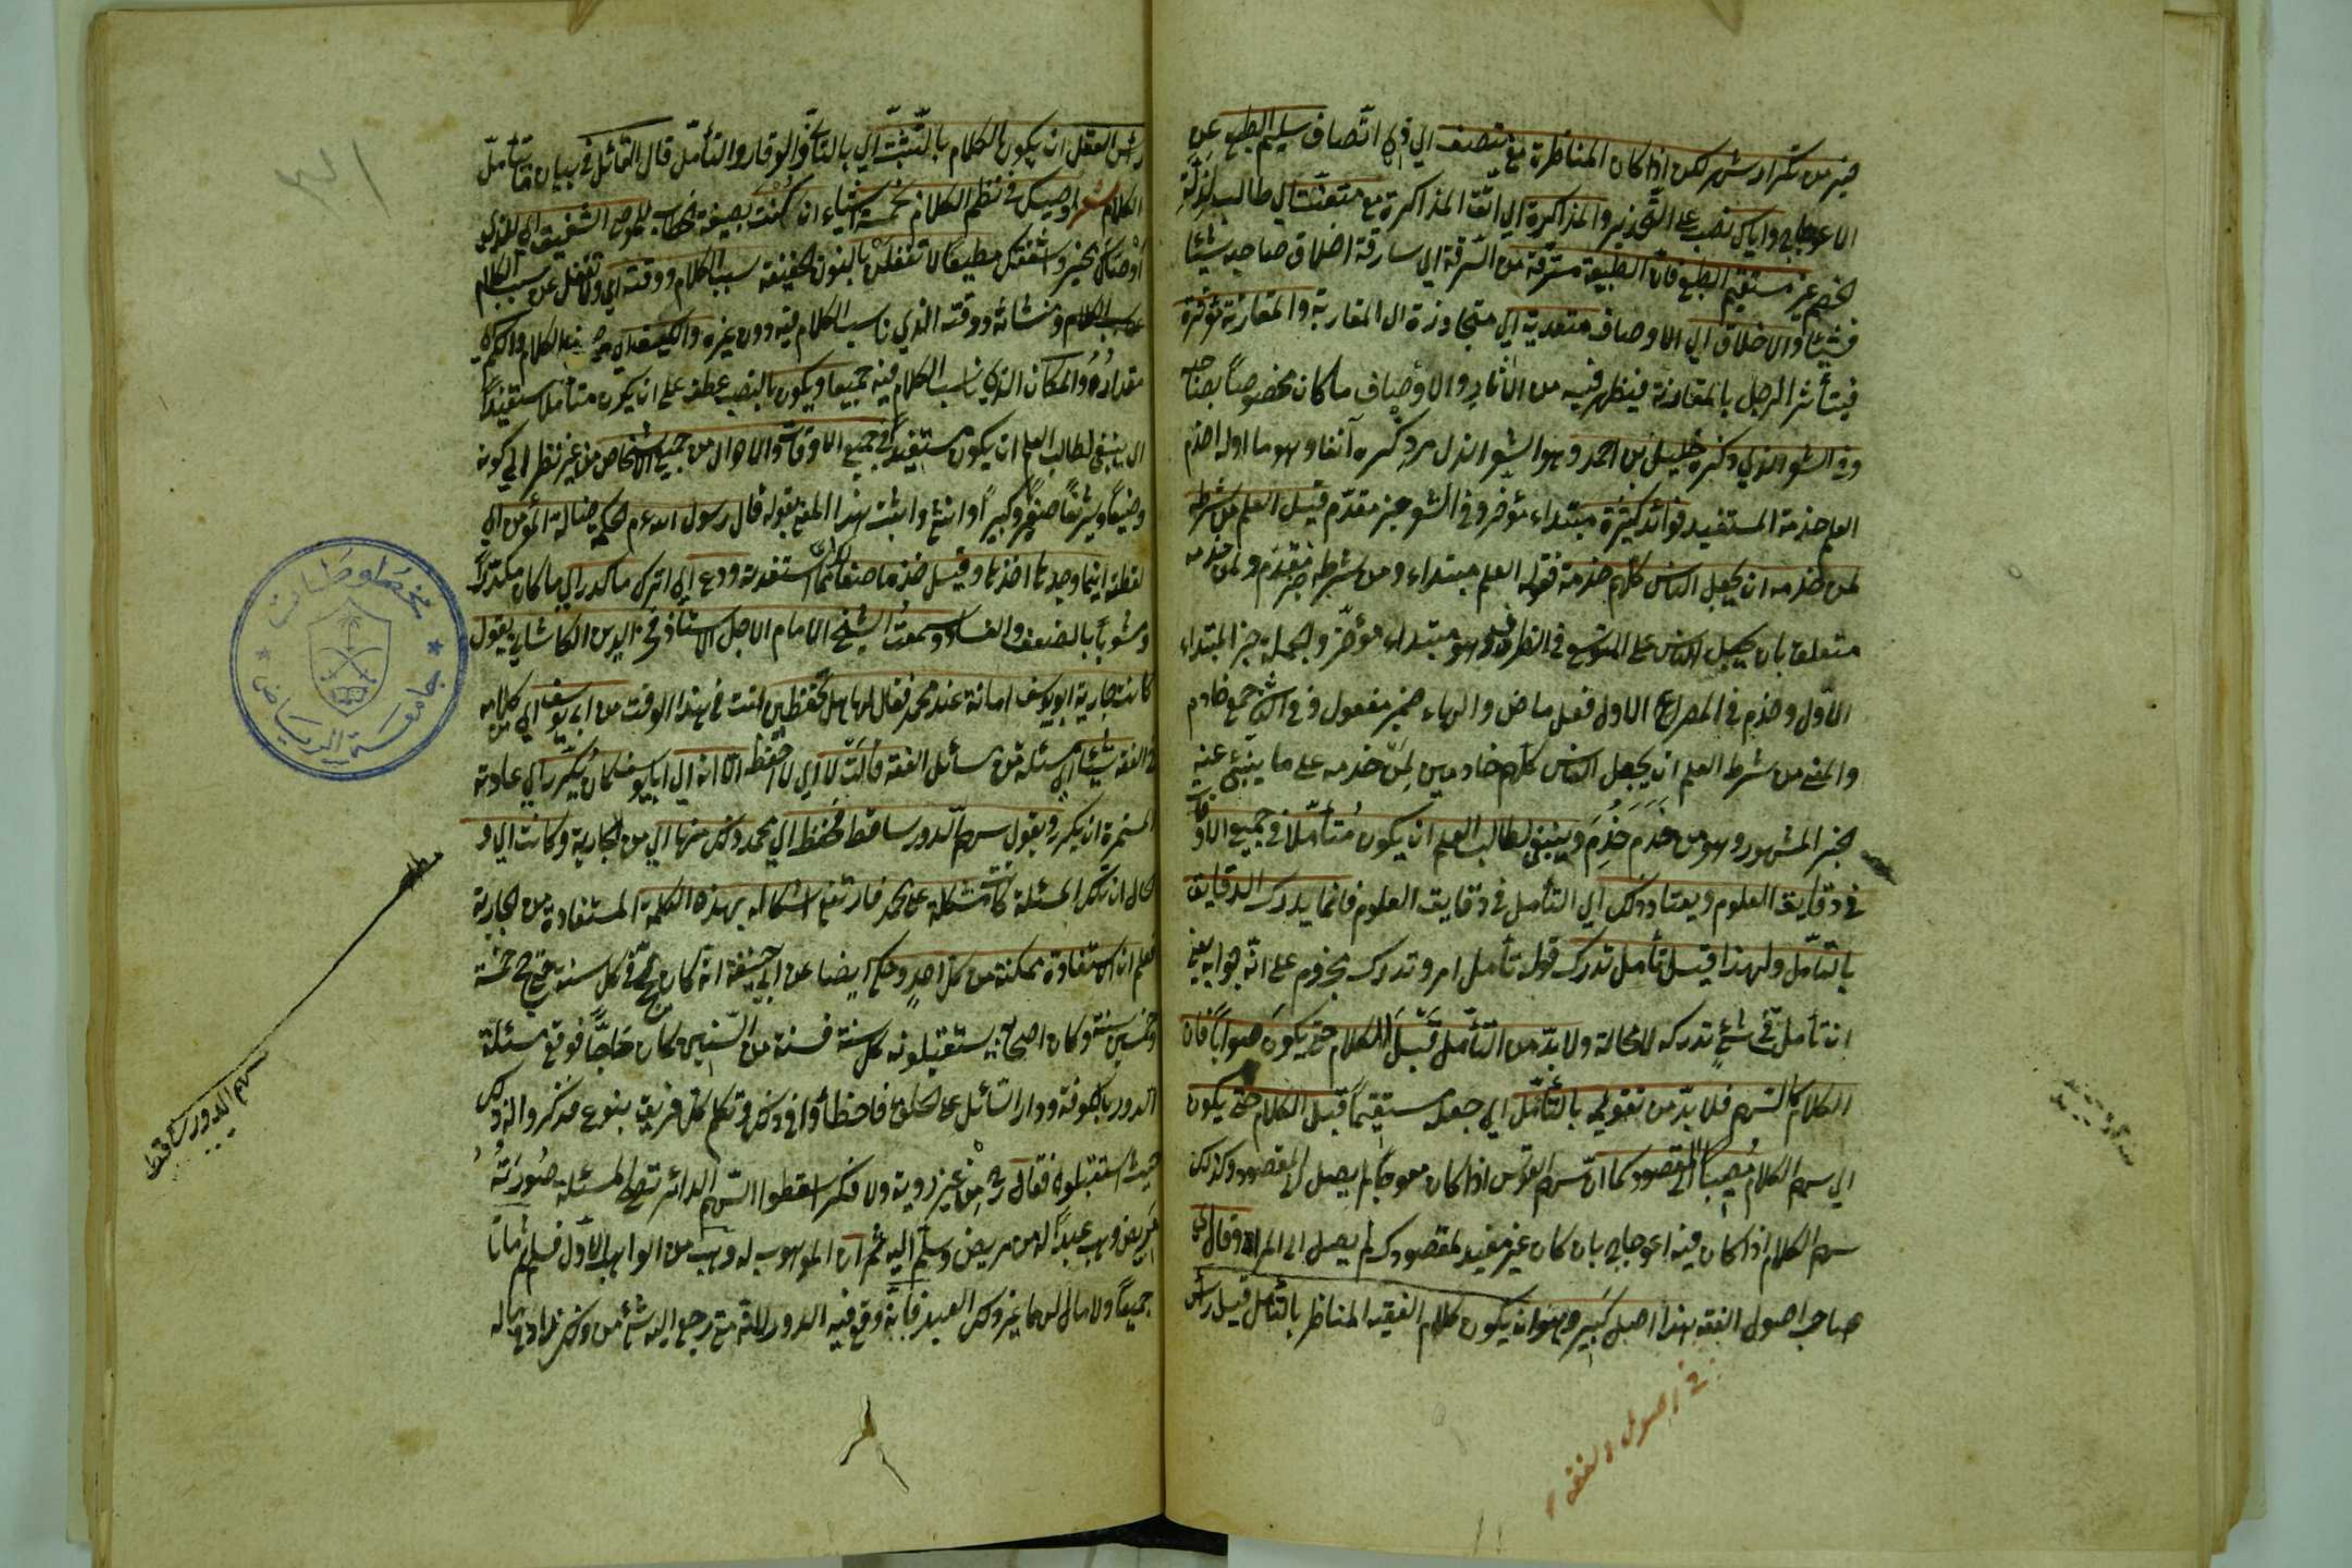 خير من تكرار شهر لكن اذا كان المناظرة مع منصف اي في اتصاف سليم الطبع عن
الاعوجاج واياك نصب على التحذير والمذاكرة اي اتق المذاكرة مع متعنت اي طالب لزلة
الخصم غير مستقيم الطبع فان الطبيعة مسترقة من السرقة اي سارقة اخلاق صاحبه شيئا
فشيئا والاخلاق اي الاوصاف متعدية اي متجاوزة الى المقاربة والمقارنة مؤثرة
فيتأثر الرجل بالمقارنة فيظهر فيه من الآثار والاوصاف ما كان مخصوصا بصاحبه
وفي الشعر الذي ذكره خليل بن احمد وهو الشعر الذي مر ذكره آنفا وهو ما اوله اخدم
العلم خدمة المستفيد فوائد كثيرة مبتداء مؤخر وفي الشعر خبر مقدم قيل العلم من شرطه
لمن خدمه ان يجعل الناس كلهم خدمه فقوله العلم مبتداء ومن شرطه خبر مقدم ولمن خدمه
متعلق بان يجعل الناس على التوسع في الظرف وهو مبتداء مؤخر والجملة خبر المبتداء
الاول وخدم في المصراع الاول فعل ماض والهاء ضمير مفعول وفي الثاني جمع خادم
والمعنى من شرط العلم ان يجعل الناس كلهم خادمين لمن خدمه على ما ينبئ عنه
الخبر المشهور وهو من خدم خدم وينبغي لطالب العلم ان يكون متأملا في جميع الاوقات
في دقايق العلوم ويعتاد ذلك اي التأمل في دقايق العلوم فانما يدرك الدقايق
بالتأمل ولهذا قيل تأمل تدرك قوله تأمل امر وتدرك مجزوم على انه جوابه يعني
ان تأمل في شئ تدركه لا محالة ولا بد من التأمل قبل الكلام حتى يكون صوابا فان
الكلام كالسهم فلا بد من تقويمه بالتأمل اي جعله مستقيما قبل الكلام حتى يكون
اي سهم الكلام مصيبا الى المقصود كما ان سهم القوس اذا كان معوجا لم يصل الى المقصود وكذلك
سهم الكلام اذا كان فيه اعوجاج بان كان غير مفيد لمقصودك لم يصل الى المراد وقال في
صاحب اصول الفقه هذا اصل كبير وهو ان يكون كلام الفقيه المناظر بالتأمل قيل رأس
في اصول الفقه
رأس العقل ان يكون الكلام بالتثبت اي بالتأني والوقار والتأمل قال القائل في بيان ما يتأمل
الكلام شعر اوصيك في نظم الكلام بخمسة اشياء ان كنت بصيغة الخطاب للموصي الشفيق اي للذي
اوصاك بخير واشفقك مطيعا لا تغفلن بالنون الخفيفة سبب الكلام ووقته اي ولا تغفل عن سبب الكلام
ومنشائه ووقته الذي ناسب الكلام فيه دون غيره والكيف اي الكلام والكم اي
مقداره والمكان الذي ناسب الكلام فيه جميعا ويكون بالنصب عطف على ان يكون متأملا مستفيدا
اي ينبغي لطالب العلم ان يكون مستفيدا في جميع الاوقات والاحوال من جميع الاشخاص من غير نظر الى كونه
وضيعا وشريفا صغيرا وكبيرا او انثى واثبت هذا المعنى بقوله قال رسول الله عم الحكمة ضالة المؤمن اي
لقطة اينما وجدها اخذها وقيل خذ ما صفا مما استفدته ودع اي اترك ما كدر اي ما كان مكدرا
ومشوبا بالضعف والفساد وسمعت الشيخ الامام الاجل الاستاذ فخر الدين الكاشاني يقول
كانت جارية ابو يوسف امانة عند محمد فقال لها هل تحفظين انت في هذا الوقت من ابي يوسف اي من كلامه
في الفقه شيئا اي مسئلة من مسائل الفقه قالت لا اي لا احفظ الا انه اي ابا يوسف كان يكرر اي عادته
المستمرة ان يكرر ويقول سهم الدور ساقط فحفظ اي محمد ذلك منها اي من الجارية وكانت اي و
الحال ان تلك المسئلة كانت مشكلة على محمد فارتفع اشكاله بهذه الكلمة المستفادة من الجارية
فعلم ان الاستفادة ممكنة من كل احد وحكي ايضا عن ابي حنيفة انه كان يحج في كل سنة حتى حج خمسة
وخمسين سنة وكان اصحابه يستقبلونه كل سنة فسنة من السنين كان حاجا فوقع مسئلة
الدور بالكوفة ودار السائل على الخلق فاخطأوا في ذلك وتكلم كل فريق بنوع فذكروا له ذلك
حيث استقبلوه فقال رح من غير روية ولا فكر اسقطوا السهم الدائر تصح المسئلة صورته
مريض وهب عبدا له من مريض وسلم اليه ثم ان الموهوب له وهب من الواهب الاول فسلم ثم ماتا
جميعا ولا مال لهما غير ذلك العبد فانه وقع فيه الدور لانه متى رجع اليه شئ من ذلك زاد في ماله
سهم الدور ساقط
مخطوطات
جامعة الرياض